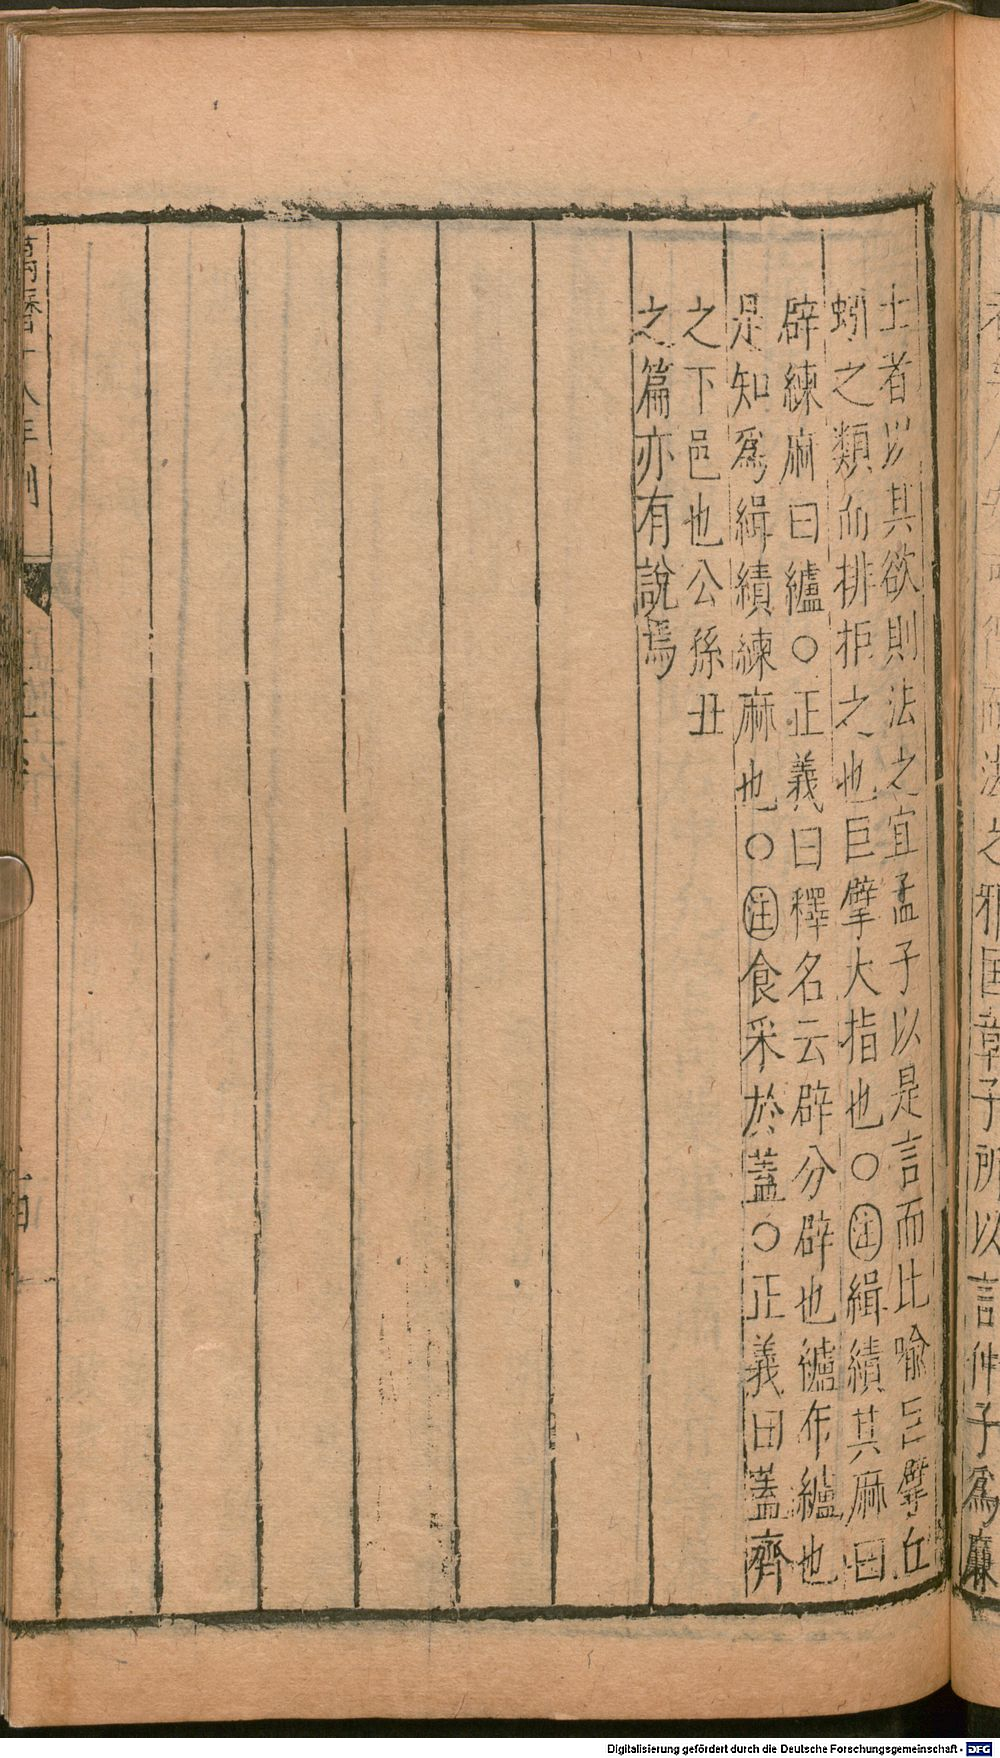 士者以其欲則法之宜孟子以是言而比喻巨擘丘
蚓之類而排拒之也巨擘大指也○注緝績其麻曰
辟練麻曰纑○正義曰釋名云辟分辟也纑布纑也
是知爲緝績練麻也○注食采於蓋○正義曰蓋齊
之下邑也公孫丑
之篇亦有說焉
萬曆十八年刊
Digitalisierung gefördert durch die Deutsche Forschungsgemeinschaft - DFG